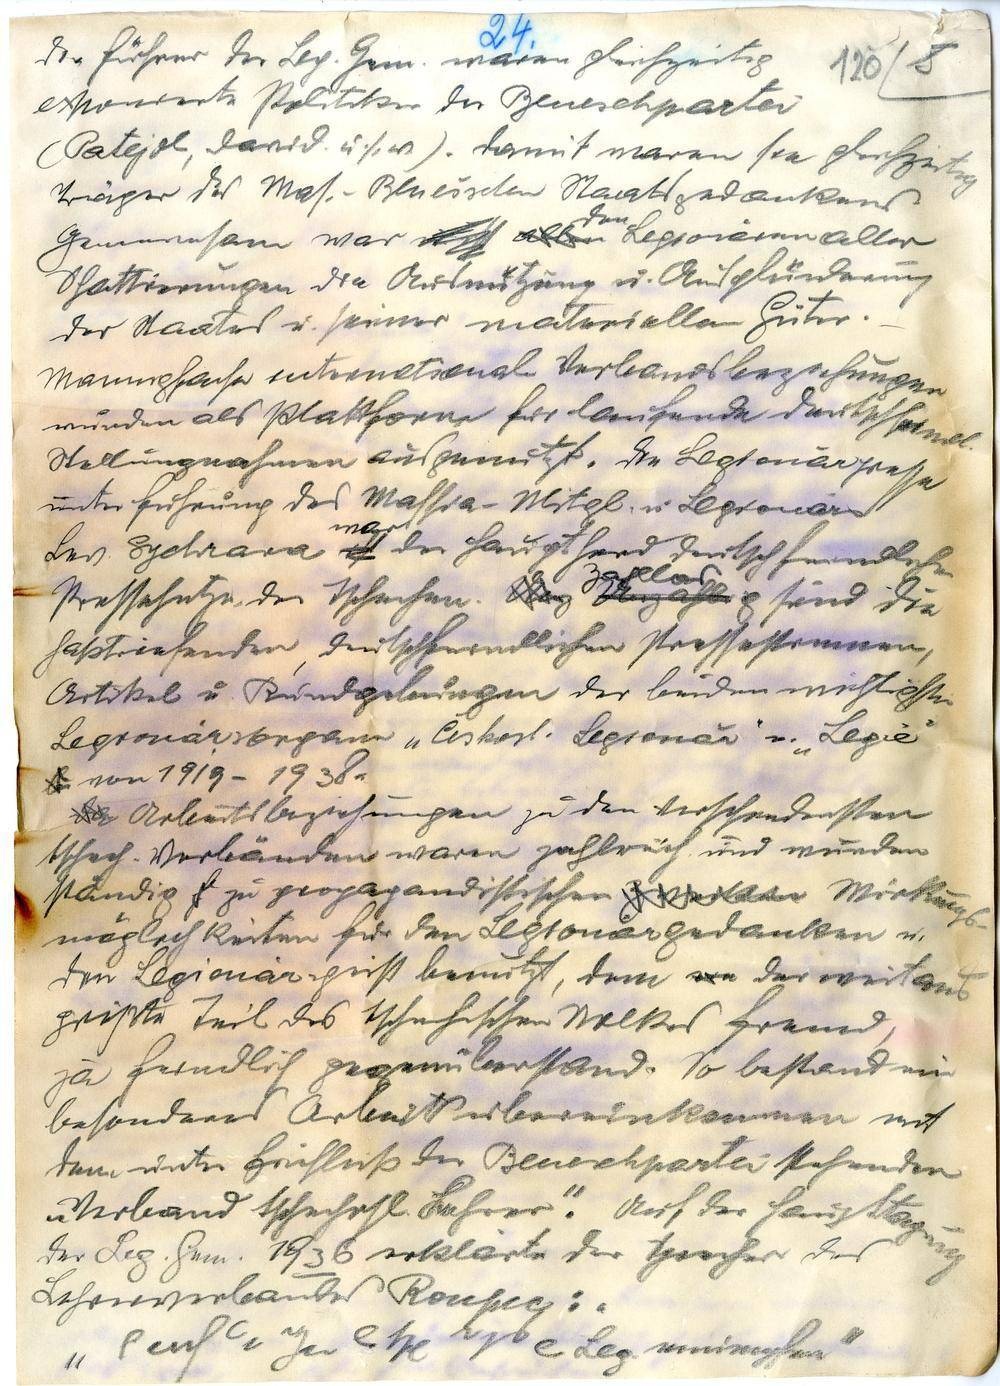 24.
120/8
die Führer der Leg. Gem. waren gleichzeitig
exponierte Politiker der Beneschpartei
(Patejdl, David u.s.w). Damit waren sie gleichzeitig
Träger des Mas.-Beneschen Staatsgedankens
Gemeinsam war den Legionären aller
Schattierungen die Ausnützung u. Ausplünderung
des Staates u. seiner materiellen Güter. –
Mannigfache internationale Verbandsbeziehungen
wurden als Plattform für laufende deutschfeindl.
Stellungnahmen ausgenutzt. Die Legionärpresse
unter Führung des Maffia-Mitgl. u. Legionärs
Lev. Sychrava war der Hauptherd deutschfeindlicher
Pressehetze der Tschechen. Zahllos sind die
haßtriefenden, deutschfeindlichen Pressestimmen,
Artikel u. Kundgebungen der beiden wichtigsten
Legionärsorgane „Českosl. Legionář" u. „Legie"
von 1919 – 1938.
Arbeitsbeziehungen zu den verschiedensten
tschech. Verbänden waren zahlreich und wurden
ständig zu propagandistischen Wirkungs-
möglichkeiten für den Legionärgedanken u.
den Legionär-geist benützt, dem der weitaus
größte Teil des tschechischen Volkes fremd,
ja feindlich gegenüberstand. So bestand ein
besonderes Arbeitsübereinkommen mit
dem unter Einfluß der Beneschpartei stehenden
„Verband tschechosl. Lehrer". Auf der Haupttagung
der Leg. Gem. 1936 erklärte der Sprecher des
Lehrerverbandes
„ Leg.